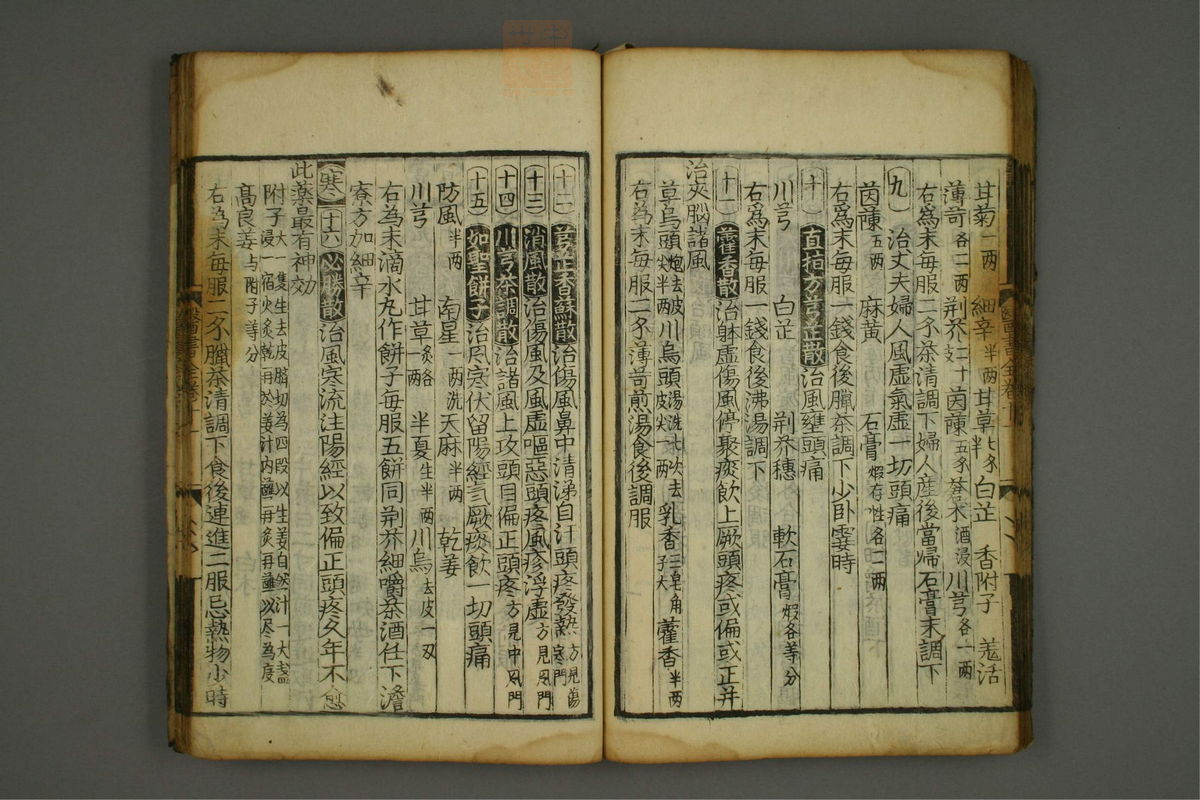 甘菊一两 細辛半两 甘草七半 白芷 香附子 羗活
薄苛各二两 荆芥二十支 茵蔯五 酒浸 川芎各一两
右為末毎服二 茶清調下婦人産後當歸石膏末調下
九 治丈夫婦人風虚氣虚一切頭痛
茵蔯五两 麻黄 石膏煆存性各二两
右爲末毎服一錢食後臘茶調下少卧霎時
十 直指方芎芷散治風壅頭痛
川芎 白芷 荆芥穗 軟石膏煆各等分
右爲末毎服一錢食後沸湯調下
十一 藿香散治躰虚傷風停聚痰飲上厥頭疼或偏或正并
治夾脳諸風
草烏頭炮去皮尖半两 川烏頭湯洗七次去皮尖一两 乳香三皂角子大 藿香半两
右為末毎服二 薄苛煎湯食後調服
十二 芎芷香蘇散治傷風鼻中清涕自汗頭疼發熱方見傷寒門
十三 消風散治傷風及風虚嘔惡頭疼風疹浮虚方見風門
十四 川芎茶調散治諸風上攻頭目偏正頭疼方見中風門
十五 如聖餅子治風寒伏留陽經氣厥痰飲一切頭痛
防風半两 南星一两洗 天麻半两 乾姜
川芎 甘草炙各一两 半夏生半两 川烏去皮一两
右為末滴水丸作餅子毎服五餅同荆芥細嚼茶酒任下澹
寮方加細辛
寒 十六 必勝散治風寒流注陽經以致偏正頭疼久年不愈
此藥最有神功
附子大一隻生去皮臍切為四段以生姜自然汁一大盞浸一宿火炙乾再於姜汁内蘸再炙再蘸以尽為度
高良姜与附子等分
右為末毎服二 臘茶清調下食後連進二服忌熱物少時